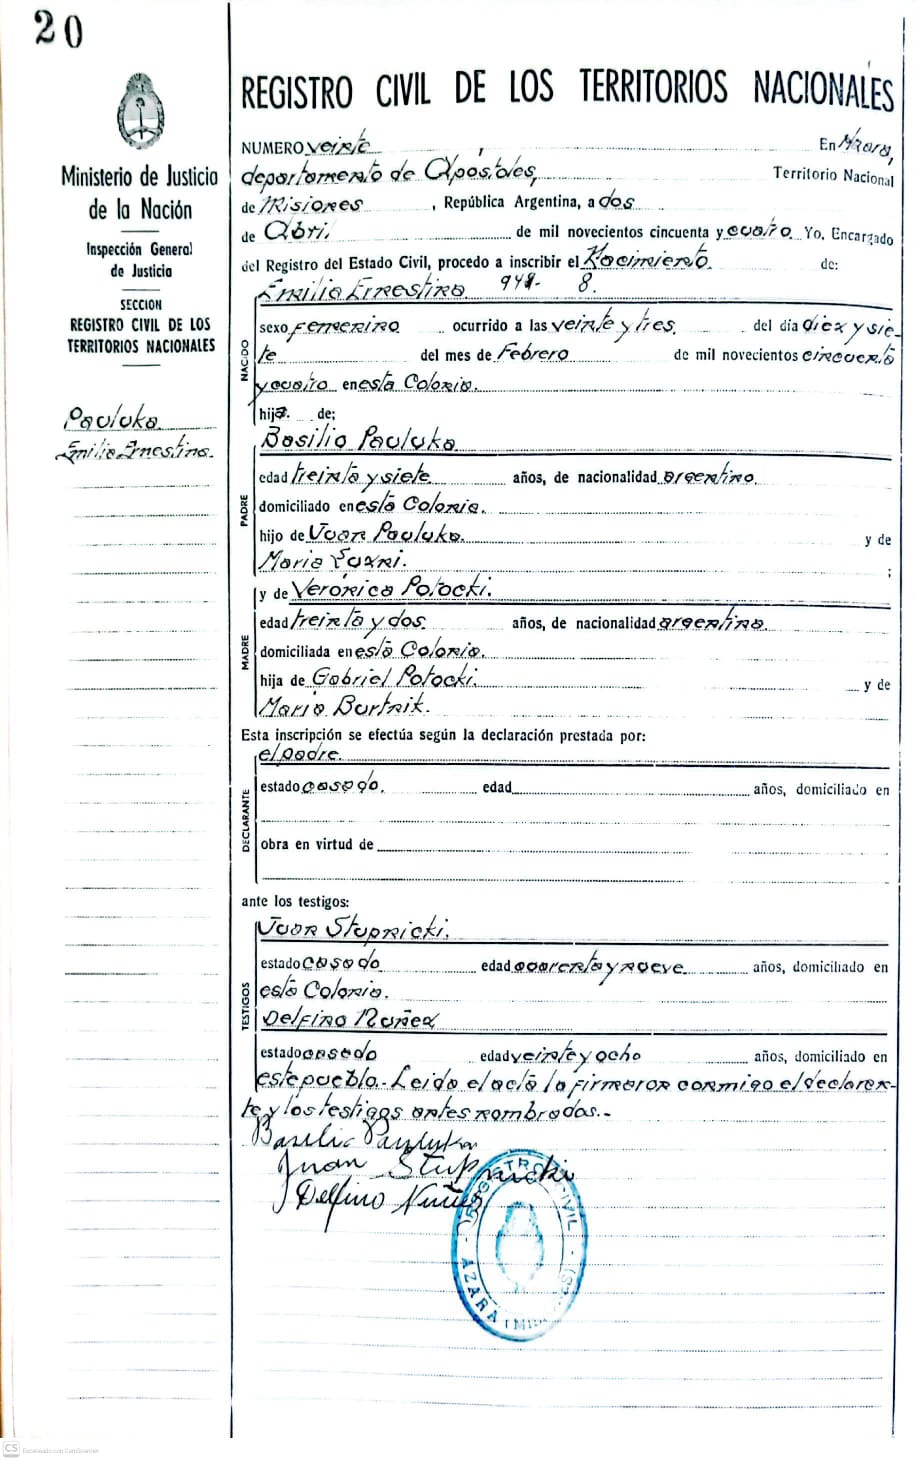 20
REGISTRO CIVIL DE LOS TERRITORIOS NACIONALES
Ministerio de Justicia
de la Nación
Inspección General
de Justicia
SECCION
REGISTRO CIVIL DE LOS
TERRITORIOS NACIONALES
Pauluka
Emilia Ernestina.
NUMERO veinte En Azara,
departamento de Apóstoles, Territorio Nacional
de Misiones , República Argentina, a dos
de Abril de mil novecientos cincuenta y cuatro Yo, Encargado
del Registro del Estado Civil, procedo a inscribir el Nacimiento. de:
Emilia Ernestina 8.
NACIDO
sexo femenino ocurrido a las veinte y tres, del día diez y sie-
te del mes de Febrero de mil novecientos cincuenta
y cuatro en esta Colonia.
hija de:
Basilio Pauluka.
PADRE
edad treinta y siete años, de nacionalidad argentino.
domiciliado en esta Colonia.
hijo de Juan Pauluka. y de
Maria ;
y de Verónica Potocki.
MADRE
edad treinta y dos. años, de nacionalidad argentina.
domiciliada en esta Colonia.
hija de Gabriel Potocki. y de
Maria Burtnik.
Esta inscripción se efectúa según la declaración prestada por:
el padre.
DECLARANTE
estado casado. edad años, domiciliado en
obra en virtud de
ante los testigos:
Juan Stupnicki.
TESTIGOS
estado casado edad cuarenta y nueve años, domiciliado en
esta Colonia.
Delfino Nuñez
estado casado edad veinte y ocho años, domiciliado en
este pueblo.- Leida el acta la firmaron conmigo el declaran-
te y los testigos antes nombrados.-
Basilio Pauluka
Juan Stupnicki
Delfino Nuñez
REGISTRO CIVIL
AZARA
Escaneado con CamScanner